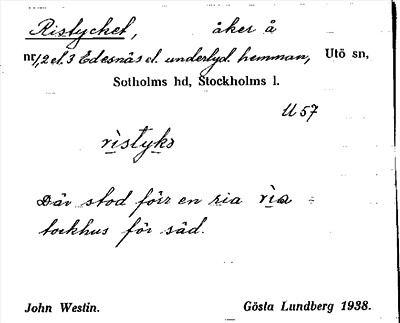 Ristycket, åker å
nr 1, 2 el. 3 Edesnäs el. underlyd. hemman, Utö sn,
Sotholms hd, Stockholms l.
U 57
ristykə
Där stod förr en ria ria =
torkhus för säd.
John Westin. Gösta Lundberg 1938.